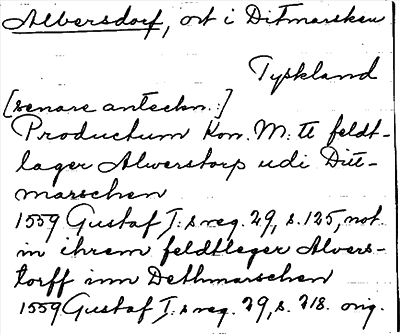 Albersdorf, ort i Ditmarsken
Tyskland
[senare anteckn.:]
Productum Kon. M:te feldt-
lager Alverstorp udi Ditt-
marschen
1559 Gustaf I:s reg. 29, s. 125, not.
in ihrem feldtleger Alvers-
torff inn Dethmarschen
1559 Gustaf I:s reg. 29, s. 218. orig.